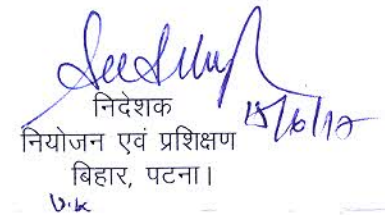 निदेशक
नियोजन एवं प्रशिक्षण
बिहार, पटना।
V.K